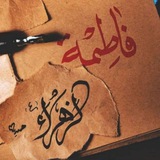 فاطمة
الزهراء